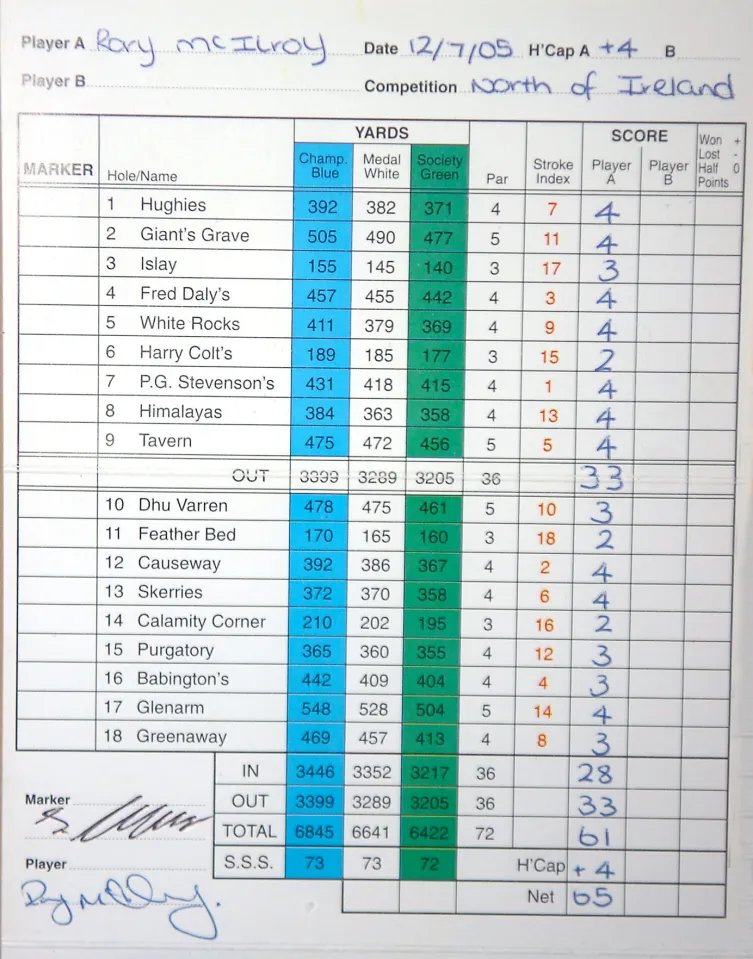 Player A Rory McIlroy Date 12/7/05 H'Cap A +4 B
Player B Competition North of Ireland
YARDS SCORE
MARKER Hole/Name Champ. Blue Medal White Society Green Par Stroke Index Player A Player B Won + Lost - Half 0 Points
1 Hughies 392 382 371 4 7 4
2 Giant's Grave 505 490 477 5 11 4
3 Islay 155 145 140 3 17 3
4 Fred Daly's 457 455 442 4 3 4
5 White Rocks 411 379 369 4 9 4
6 Harry Colt's 189 185 177 3 15 2
7 P.G. Stevenson's 431 418 415 4 1 4
8 Himalayas 384 363 358 4 13 4
9 Tavern 475 472 456 5 5 4
OUT 3399 3289 3205 36 33
10 Dhu Varren 478 475 461 5 10 3
11 Feather Bed 170 165 160 3 18 2
12 Causeway 392 386 367 4 2 4
13 Skerries 372 370 358 4 6 4
14 Calamity Corner 210 202 195 3 16 2
15 Purgatory 365 360 355 4 12 3
16 Babington's 442 409 404 4 4 3
17 Glenarm 548 528 504 5 14 4
18 Greenaway 469 457 413 4 8 3
IN 3446 3352 3217 36 28
Marker OUT 3399 3289 3205 36 33
TOTAL 6845 6641 6422 72 61
Player S.S.S. 73 73 72 H'Cap +4
Rory McIlroy. Net 65